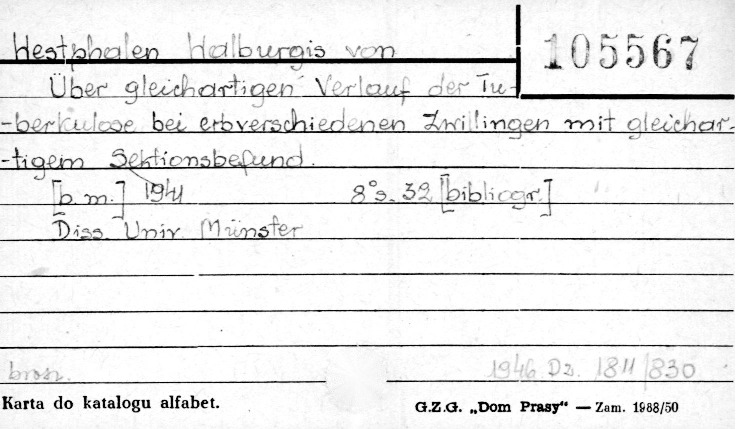 Westphalen Walburgis von
105567
Über gleichartigen Verlauf der Tu-
-berkulose bei erbverschiedenen Zwillingen mit gleichar-
-tigem Sektionsbefund.
[b.m.] 1941 8°s. 32 [bibliogr.]
Diss. Univ. Münster
brosz.
1946 Dz. 1811/830
Karta do katalogu alfabet.
G.Z.G. „Dom Prasy“ — Zam. 1988/50